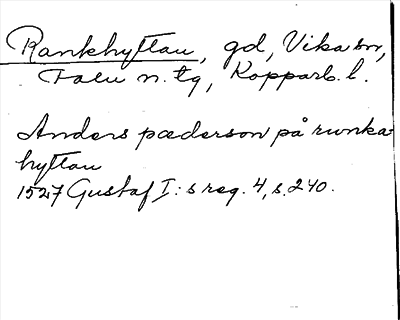 Rankhyttan, gd, Vika sn,
Falu n. tg, Kopparb. l.
Anders pæderson på runka=
hyttan
1527 Gustaf I:s reg. 4, s. 240.